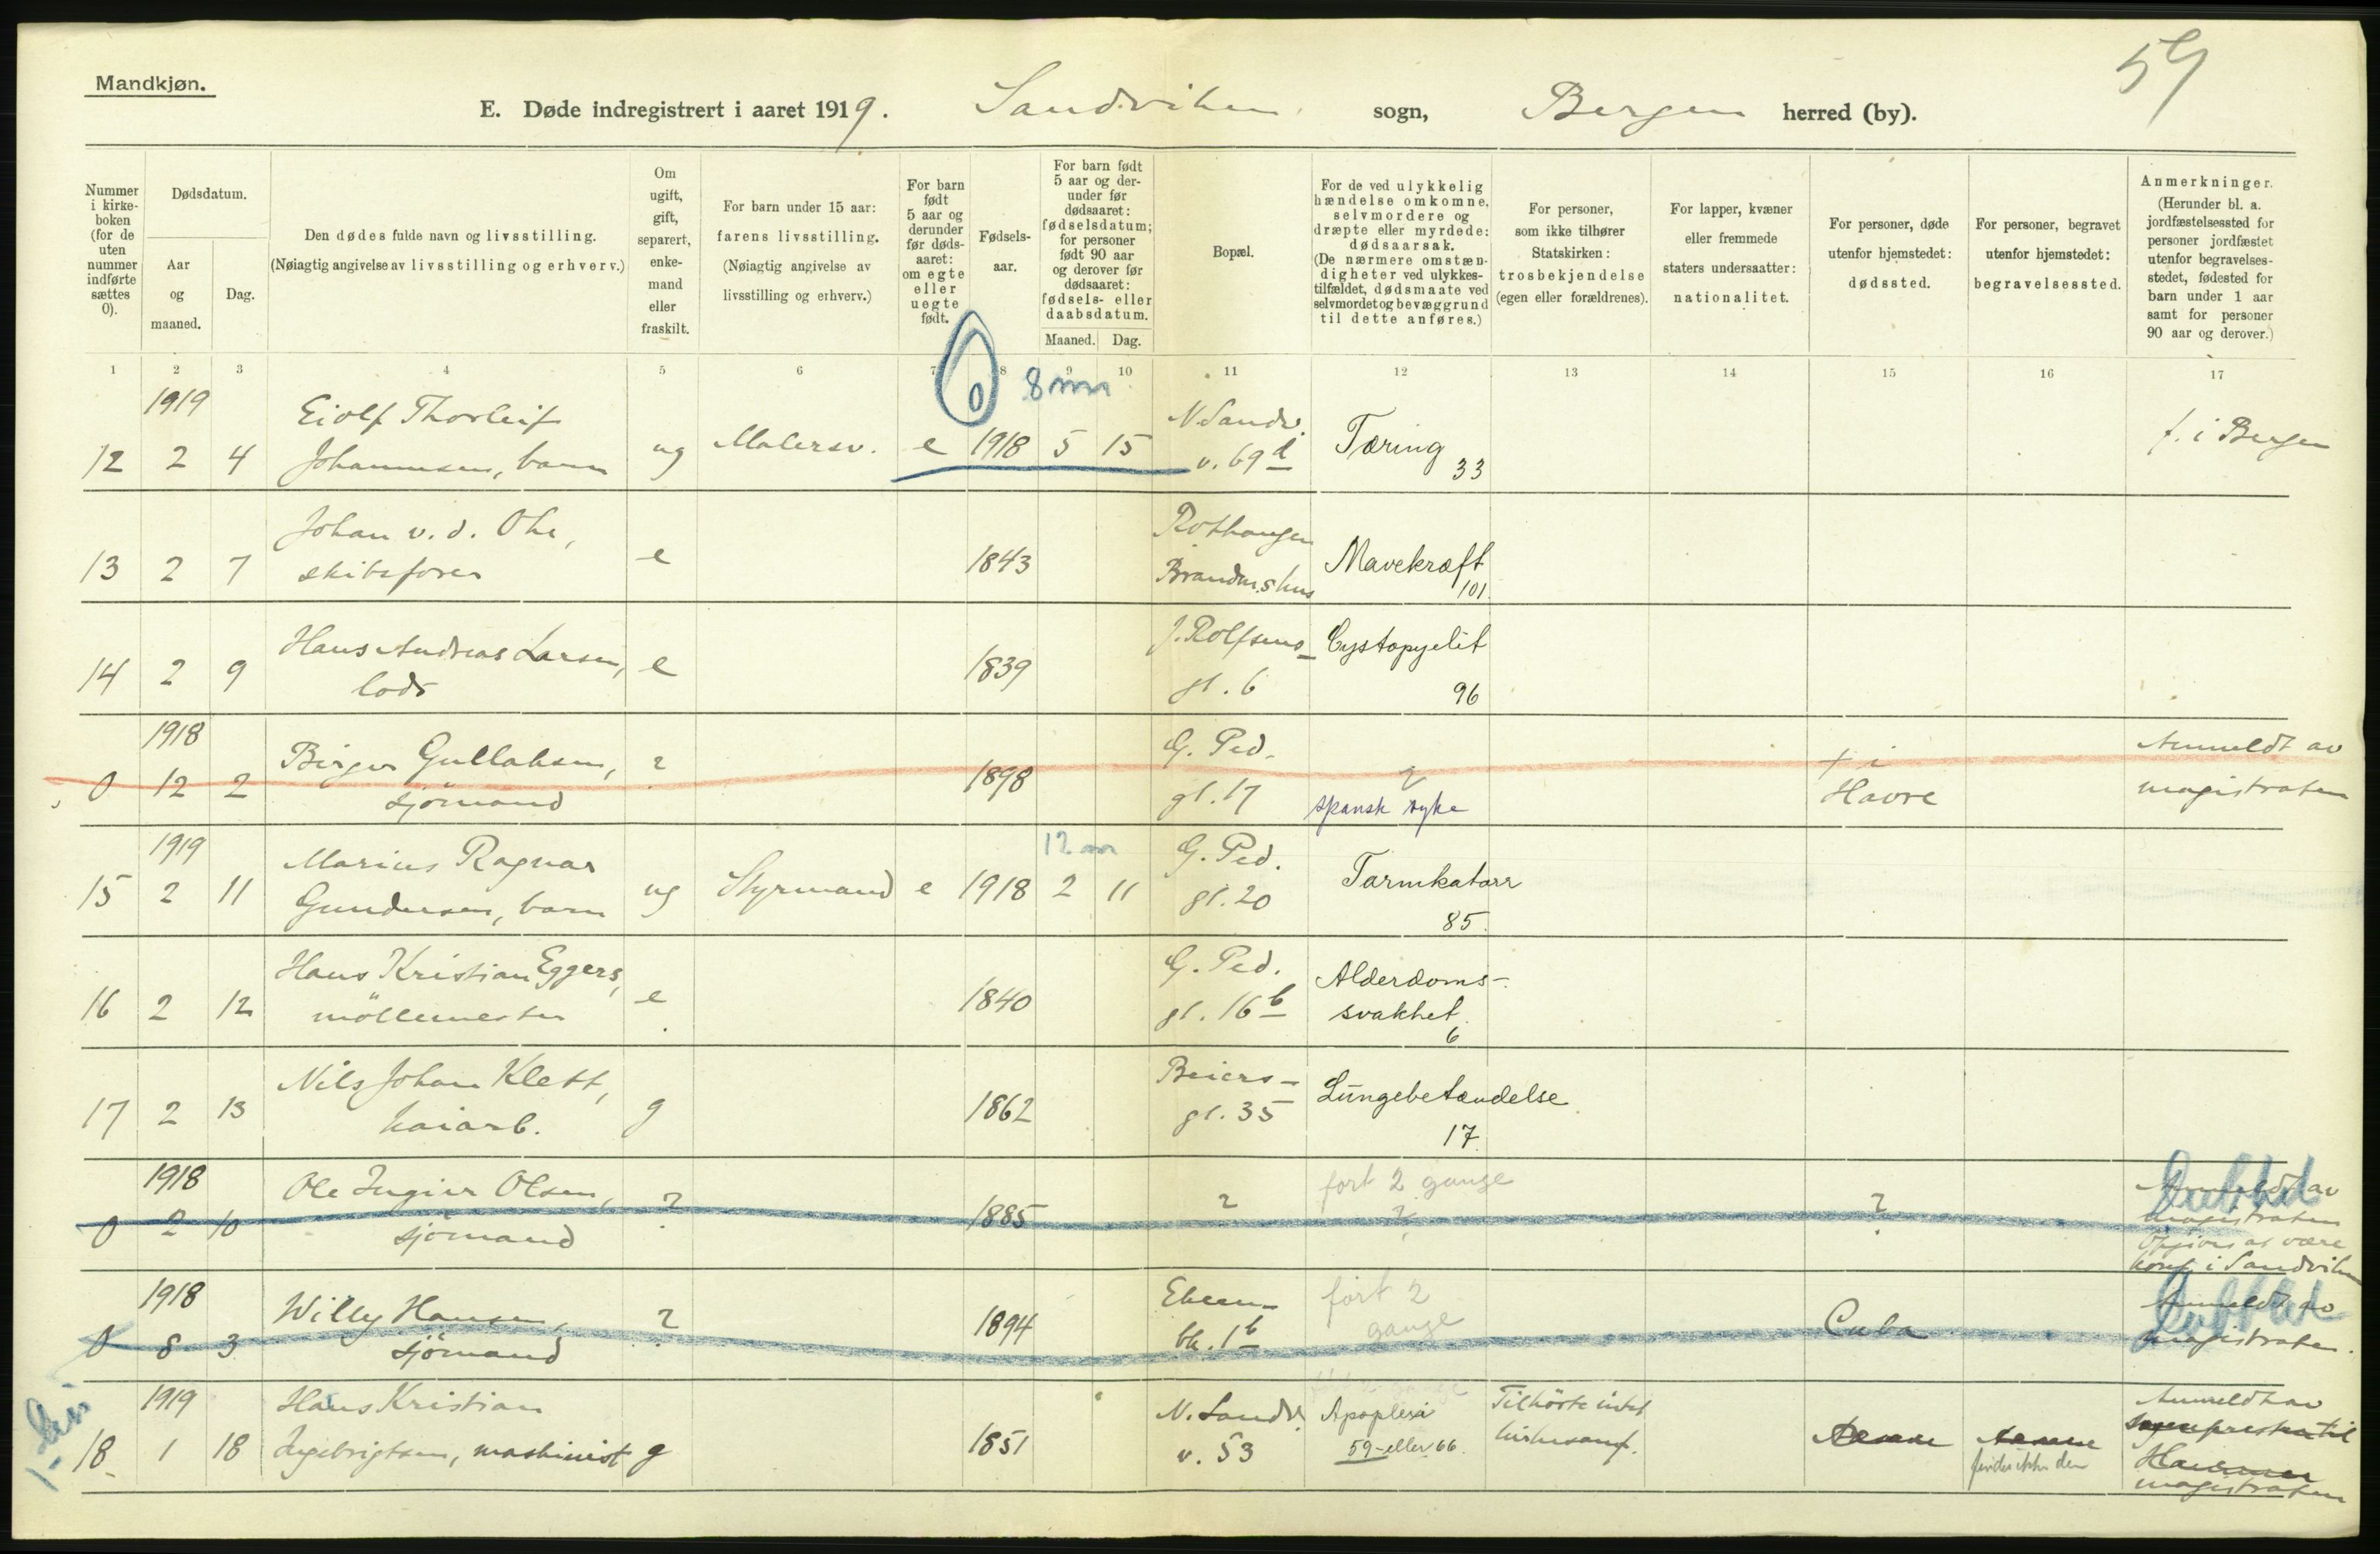 59
Mandkjøn.
E. Døde indregistrert i aaret 1919. Sandviken sogn, Bergen herred (by).
Nummer i kirke-boken (for de uten nummer indførte sættes 0).
Dødsdatum.
Aar og maaned.
Dag.
Den dødes fulde navn og livsstilling.
(Nøiagtig angivelse av livsstilling og erhverv.)
Om ugift, gift, separert, enke-mand eller fraskilt.
For barn under 15 aar: farens livsstilling.
(Nøiagtig angivelse av livsstilling og erhverv.)
For barn født 5 aar og derunder før døds-aaret: om egte eller uegte født.
Fødsels-aar.
For barn født 5 aar og der-under før dødsaaret: fødselsdatum; for personer født 90 aar og derover før dødsaaret: fødsels- eller daabsdatum.
Maaned. Dag.
Bopæl.
For de ved ulykkelig hændelse omkomne, selvmordere og dræpte eller myrdede: dødsaarsak.
(De nærmere omstæn-digheter ved ulykkes-tilfældet, dødsmaate ved selvmordet og bevæggrund til dette anføres.)
For personer, som ikke tilhører Statskirken: trosbekjendelse (egen eller forældrenes).
For lapper, kvæner eller fremmede staters undersaatter: nationalitet.
For personer, døde utenfor hjemstedet: dødssted.
For personer, begravet utenfor hjemstedet: begravelsessted.
Anmerkninger.
(Herunder bl. a. jordfæstelsessted for personer jordfæstet utenfor begravelses-stedet, fødested for barn under 1 aar samt for personer 90 aar og derover.)
1 2 3 4 5 6 7 8 9 10 11 12 13 14 15 16 17
0 8 mn
1919 Eiolf Thorleif N. Sandv.
12 2 4 Johannesen, barn ug Malersv. e 1918 5 15 v. 69 d Tæring 33 f. i Bergen
Johan v. d. Ohe, Rothaugen
13 2 7 skibsfører e 1843 Brandm.shus Mavekræft 101
Hans Andreas Larsen, J. Rolfsens- Cystopyelit
14 2 9 lods e 1839 gt. 6 96
1918 Birger Gullaksen, ? G. Ped. ? + i Anmeldt av
0 12 2 sjömand 1898 gt. 17 spansk syke Havre magistraten
1919 Marius Ragnar 12 m G. Ped.
15 2 11 Gundersen, barn ug Styrmand e 1918 2 11 gt. 20 Tarmkatarr 85
Hans Kristian Eggers, G. Ped. Alderdoms-
16 2 12 möllemester e 1840 gt. 16 b svakhet 6
Nils Johan Klett, Beiers-
17 2 13 kaiarb. g 1862 gt. 35 Lungebetændelse 17
1918 Ole Ingier Olsen, ? ? fört 2 gange Anmeldt av
0 2 10 sjömand 1885 ? ? magistraten
Opgives at være
konf. i Sandviken
1918 Willy Hansen, ? Ekeen- fört 2 Anmeldt av
0 8 3 sjömand 1894 bk. 1 b gange Cuba magistraten.
1919 Hans Kristian N. Sandv. Apoplexi Tilhörte intet Anmeldt av
18 1 18 Ingebrigtsen, maskinist g 1851 v. 53 59 eller 66. kirkesamf. sognepresten til
magistraten